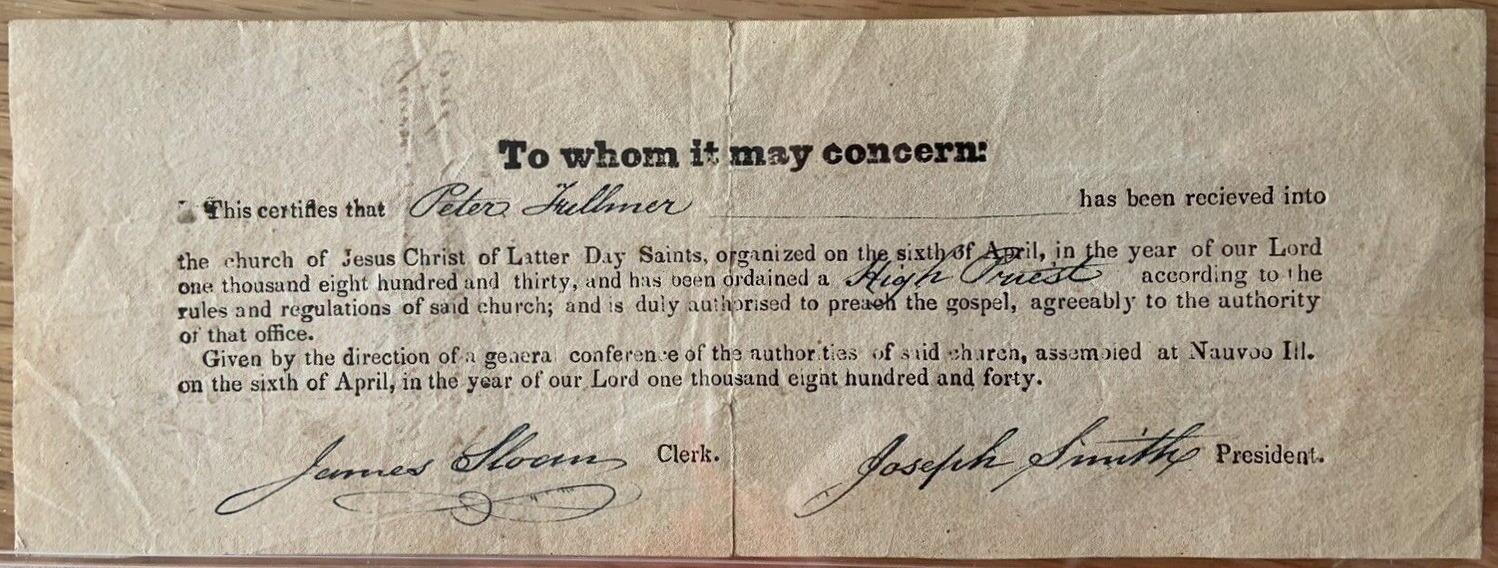 To whom it may concern:
This certifies that Peter Fullmer has been recieved into
the church of Jesus Christ of Latter Day Saints, organized on the sixth of April, in the year of our Lord
one thousand eight hundred and thirty, and has been ordained a High Priest according to the
rules and regulations of said church; and is duly authorised to preach the gospel, agreeably to the authority
of that office.
Given by the direction of a general conference of the authorities of said church, assembled at Nauvoo Ill.
on the sixth of April, in the year of our Lord one thousand eight hundred and forty.
James Sloan Clerk. Joseph Smith President.